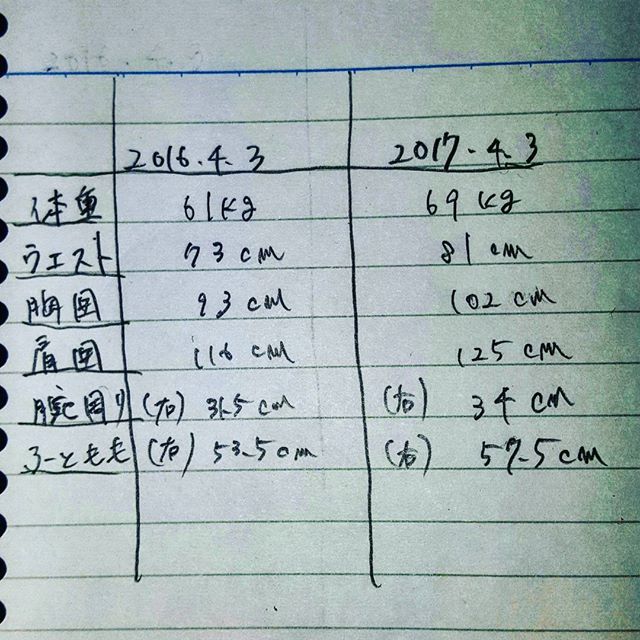 2016.4.3 2017.4.3
体重 61kg 69kg
ウエスト 73cm 81cm
胸囲 93cm 102cm
肩囲 116cm 125cm
腕囲り (右) 31.5cm (右) 34cm
ふともも (右) 53.5cm (右) 57.5cm